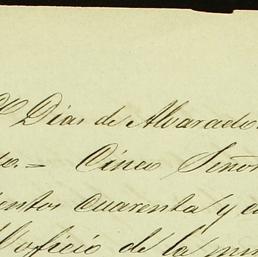 Dias de Alvarado
to.= Cinco Señor
ientos cuarenta y c
oficio de la